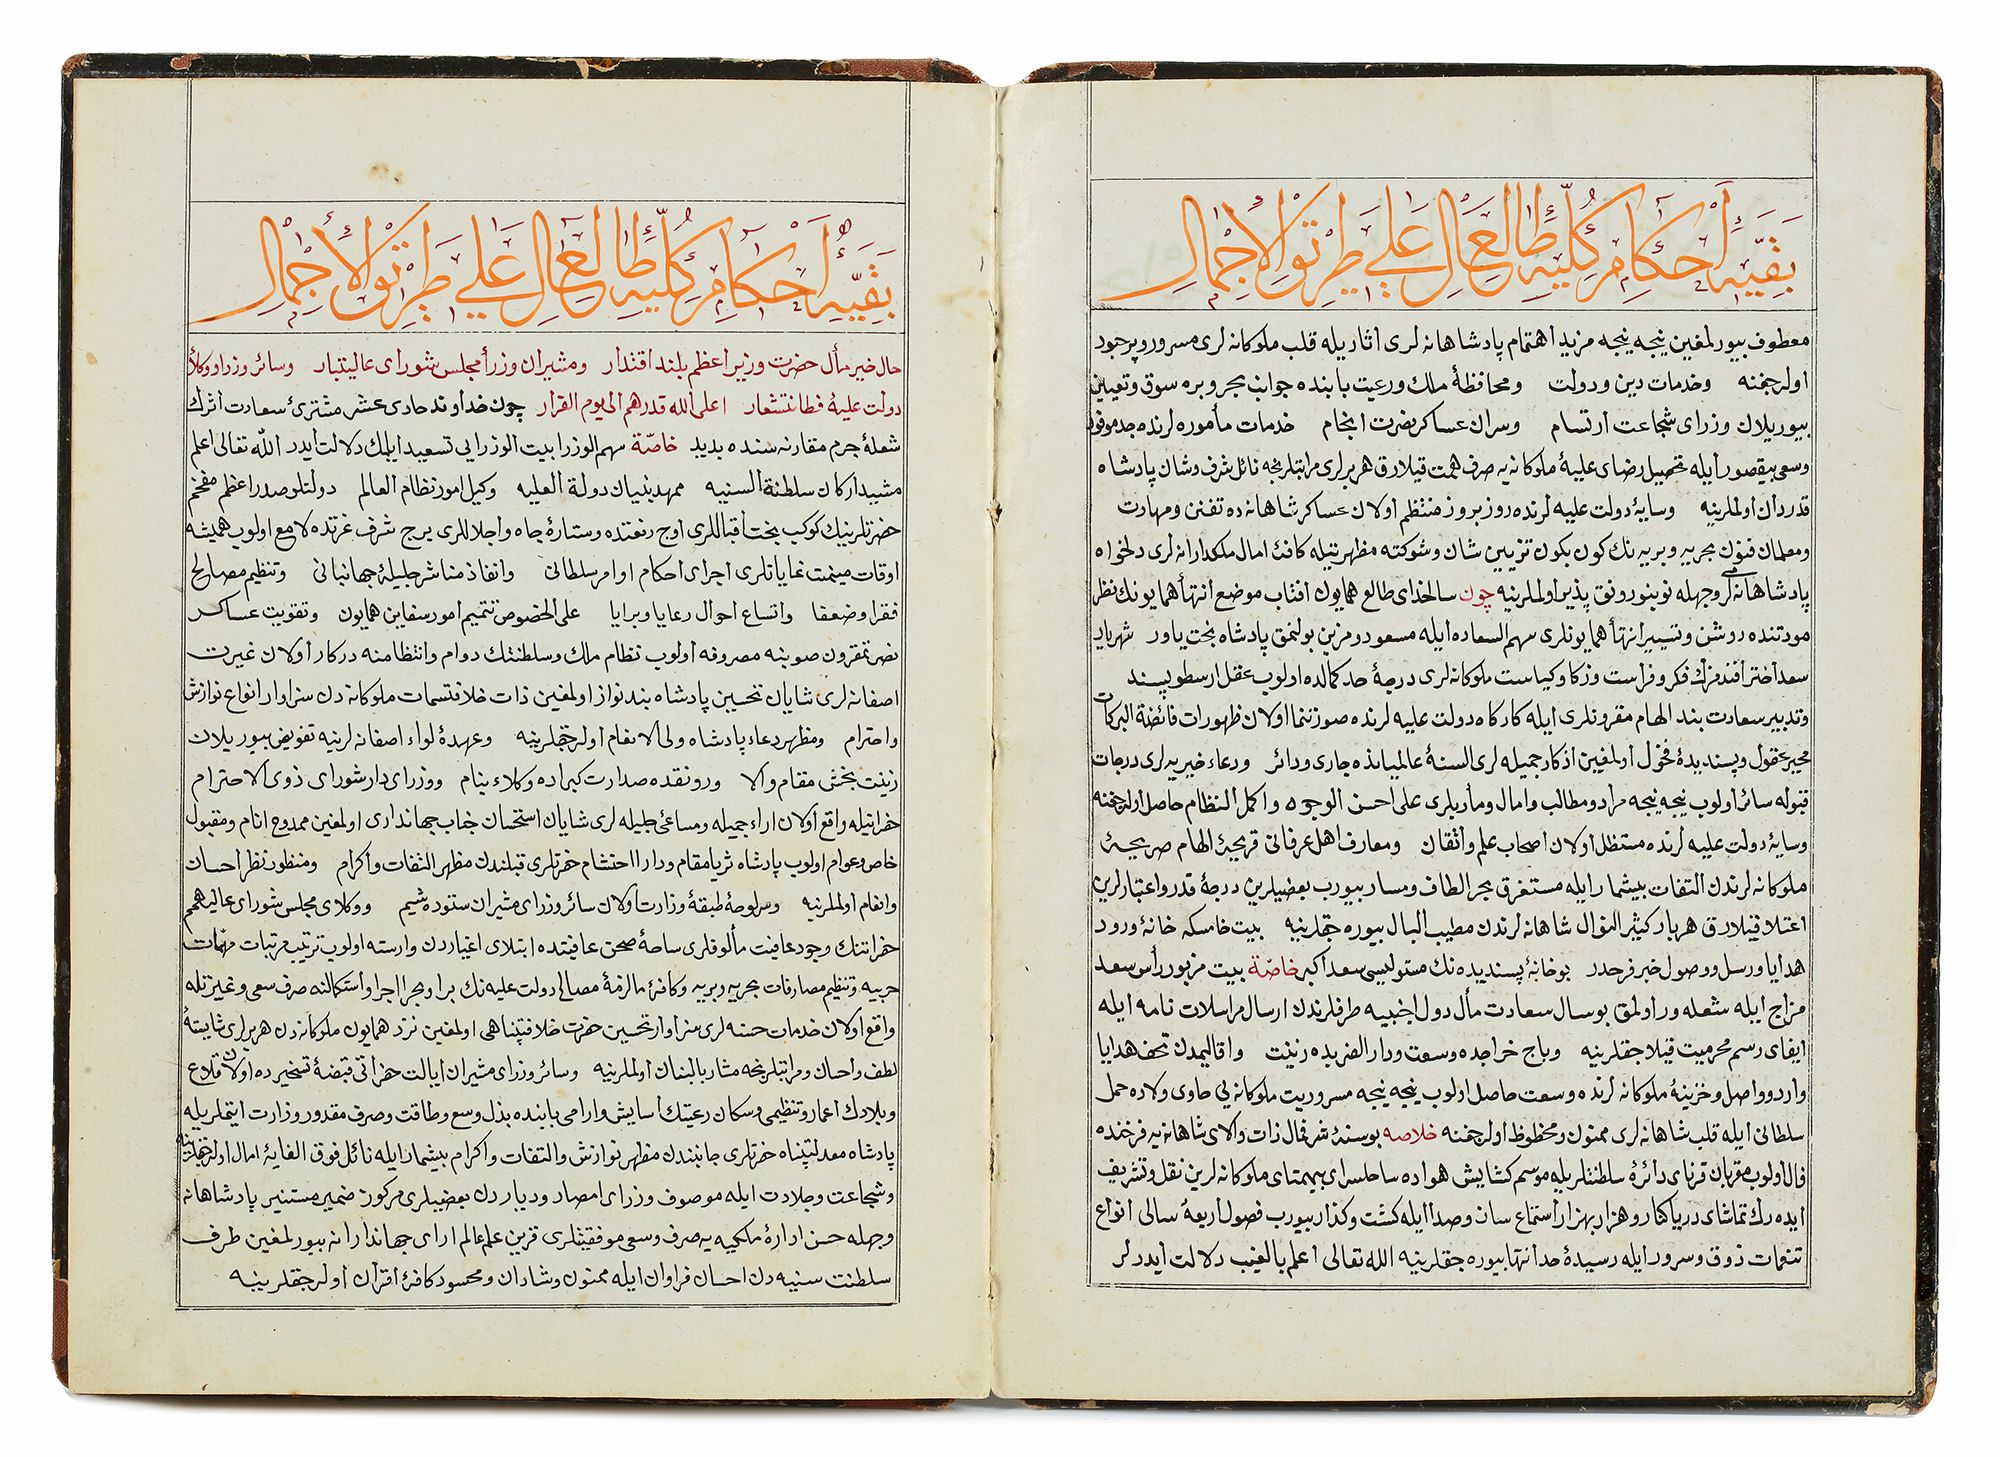 بقيّه أحكام كلّيّه طالع سال على طريق الإجمال
معطوف بيورلمغين نيجه نيجه مزيد اهتمام پادشاهانه لرى اثاريله قلب ملوكانه لرى مسرور وپر حبور
اوله جغنه وخدمات دين ودولت ومحافظهٔ ملك ورعيت بابنده جوانب بحر وبره سوق وتعيين
بيوريلان وزراى شجاعت ارتسام وسران عساكر نصرت انجام خدمات مأموره لرنده جد موفور
وسعى بيقصور ايله تحصيل رضاى عليهٔ ملوكانه يه صرف همت قيلارق هر برلرى مراتبلرنجه نائل شرف وشان پادشاه
قدردان اولملرينه وسايهٔ دولت عليه لرنده روز بروز منتظم اولان عساكر شاهانه ده تفنن ومهارت
ومعلمان فنون بحريه وبريه نك كون بكون تزيين شان وشوكته مظهريتيله كافهٔ امال ملكدارانه لرى دلخواه
پادشاهانه لرى وجهله نوبنو رونق پذير اولملرينه چون سالخداى طالع همايون افتاب موضع انتهاء همايونك نظر
مودتنده روشن وتسيير انتهاء همايونلرى سهم السعاده ايله مسعود ومزين بولنمق پادشاه بخت ياور شهريار
سعد اختر افندمزك فكر وفراست وزكا وكياست ملوكانه لرى درجهٔ حد كمالده اولوب عقل ارسطو پسند
وتدبير سعادت بند الهام مقرونلرى ايله كاركاه دولت عليه لرنده صورتنما اولان ظهورات فائضة البركات
محير عقول وپسنديدهٔ فحول اولمغين اذكار جميله لرى السنهٔ عالميانده جارى ودائر ودعاء خيريه لرى درجات
قبوله سائر اولوب نيجه نيجه مراد ومطالب وامال ومأربلرى على احسن الوجوه واكمل النظام حاصل اوله جغنه
وسايهٔ دولت عليه لرنده مستظل اولان اصحاب علم واتقان ومعارف اهل عرفانى قريحهٔ الهام صريحهٔ
ملوكانه لرندن التفات بيشمار ايله مستغرق بحر الطاف ومسار بيورب بعضيلرين درجهٔ قدر واعتبارلرين
اعتلا قيلارق هر بار كثير النوال شاهانه لرندن مطيب البال بيوره جقلرينه بيت خامسكه خانهٔ ورود
هدايا ورسل ووصول خبر فرحدر بو خانهٔ پسنديده نك مستوليسى سعد اكبر خاصّة بيت مزبور رأس سعد
مزاج ايله شعله ور اولمق بو سال سعادت مأل دول اجنبيه طرفلرندن ارسال مراسلات نامه ايله
ايفاى رسم محرميت قيلاجقلرينه وباج خراجده وسعت ودار الضربده زينت واقاليمدن تحف هدايا
وارد وواصل وخزينهٔ ملوكانه لرنده وسعت حاصل اولوب نيجه نيجه مسروريت ملوكانه يى حاوى ولاده حمل
سلطانى ايله قلب شاهانه لرى ممنون ومحظوظ اوله جغنه خلاصه بو سنهٔ شرفمال ذات والاى شاهانه يه فرخنده
فال اولوب مقربان قرناى دائرهٔ سلطنتلريله موسم كشايش هواده ساحلسراى بيهمتاى ملوكانه لرين نقل وتشريف
ايده رك تماشاى دريا كنار وهزار بهزار استماع سان وصدا ايله كشت وكذار بيورب فصول اربعهٔ سالى انواع
تنعمات ذوق وسرور ايله رسيدهٔ حد انتها بيوره جقلرينه الله تعالى اعلم بالغيب دلالت ايدرلر
بقيّهٔ أحكام كلّيّه طالع سال على طريق الإجمال
حال خير مأل حضرت وزير اعظم بلند اقتدار ومشيران وزرأ مجلس شوراى عاليتبار وسائر وزرا ووكلأ
دولت عليهٔ فطانتشعار اعلى الله قدرهم الى يوم القرار چون خداوند حادى عشر مشترئ سعادت اثرك
شعلهٔ جرم مقارنه سنده بديد خاصّة سهم الوزرا بيت الوزرايى تسعيد ايلمك دلالت ايدر الله تعالى اعلم
مشيد اركان سلطنة السنيه ممهد بنيان دولة العليه وكيل امور نظام العالم دولتلو صدر اعظم مفخم
حضرتلرينك كوكب بخت اقباللرى اوج رفعتده وستارهٔ جاه واجلاللرى برج شرف غرتده لامع اولوب هميشه
اوقات ميمنت غاياتلرى اجراى احكام اوامر سلطانى وانفاذ مناشر جليلهٔ جهانبانى وتنظيم مصالح
فقرا وضعفا واتساع احوال رعايا وبرايا على الخصوص تتميم امور سفاين همايون وتقويت عساكر
نصرتمقرون صوبنه مصروفه اولوب نظام ملك وسلطنتك دوام وانتظامنه دركار اولان غيرت
اصفانه لرى شايان تحسين پادشاه بنده نواز اولمغين ذات خلافتسمات ملوكانه دن سزاوار انواع نوازش
واحترام ومظهر دعاء پادشاه ولى الانعام اوله جقلرينه وعهدهٔ لواء اصفانه لرينه تفويض بيوريلان
زينت بخش مقام والا ورونقده صدارت كبراده وكلاء بنام ووزراى دار شوراى ذوى الاحترام
حضراتيله واقع اولان اراء جميله ومساعئ جليله لرى شايان استحسان جناب جهاندارى اولمغين ممدوح انام ومقبول
خاص وعوام اولوب پادشاه ثريا مقام ودارا احتشام حضرتلرى قبلندن مظهر التفات واكرام ومنظور نظر احسان
وانعام اولملرينه ومربوطهٔ طبقهٔ وزارت اولان سائر وزراى مشيران ستوده شيم ووكلاى مجلس شوراى عاليهمم
حضراتنك وجود عافيت مألوفلرى ساحهٔ صحن عافيتده ابتلاى اغياردن وارسته اولوب ترتيب مرتبات مهمات
حربيه وتنظيم مصارفات بحريه وبريه وكافهٔ مالزمهٔ مصالح دولت عليه نك برا وبحرا اجرا واستكمالنه صرف سعى وغيرتله
واقع اولان خدمات حسنه لرى سزاوار تحسين حضرت خلافتپناهى اولمغين نزد همايون ملوكانه دن هر برلرى شايستهٔ
لطف واحسان ومراتبلرنجه مشار بالبنان اولملرينه وسائر وزراى مشيران ايالت حضراتى قبضهٔ تسخيرده اولان قلاع
وبلادك اعمار وتنظيمى وسكان رعيتك اسايش وارامى بابنده بذل وسع وطاقت وصرف مقدور وزارت ايتملريله
پادشاه معدلتپناه حضرتلرى جانبندن مظهر نوازش والتفات واكرام بيشمار ايله نائل فوق الغايهٔ امال اوله جقلرينه
وشجاعت وجلادت ايله موصوف وزراى امصار ودياردن بعضيلرى مركوز ضمير مستنير پادشاهانه
وجهله حسن ادارهٔ ملكيه يه صرف وسعى موفقيتلرى قرين علم عالم اراى جهاندارانه بيورلمغين طرف
سلطنت سنيه دن احسان فراوان ايله ممنون وشادان ومحسود كافهٔ اقران اوله جقلرينه